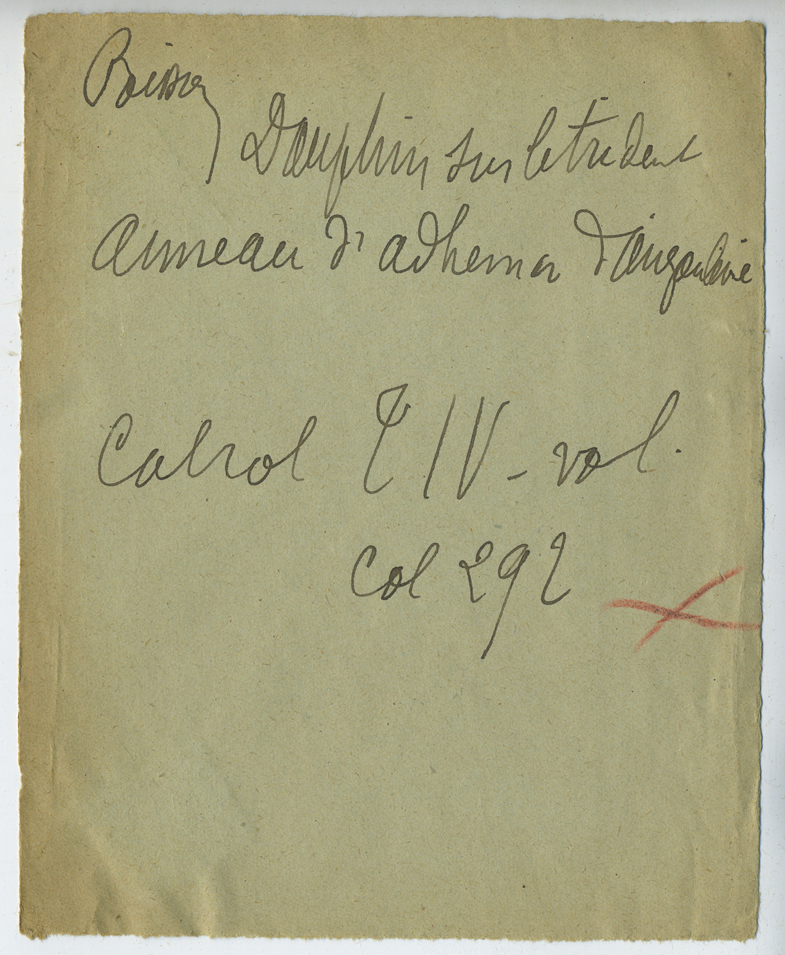 Poisson
Dauphin sur le trident
anneau d'adhemar d'angoulême
Cabrol T IV - vol.
Col 292